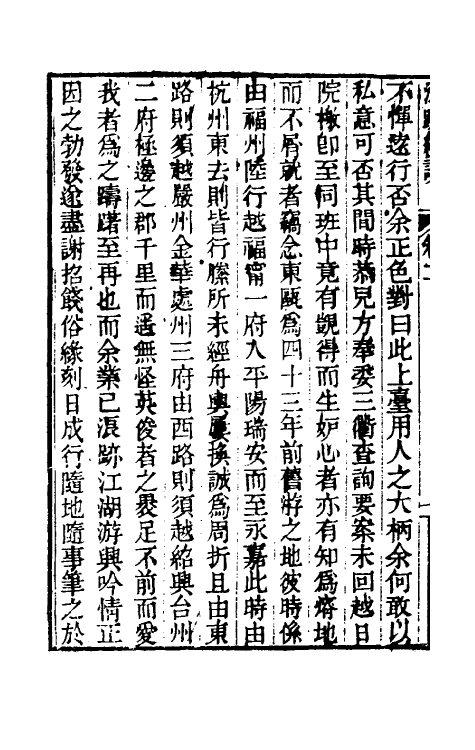 不憚遠行否余正色對曰此上臺用人之大柄余何敢以
私意可否其間時恭兒方奉委三衢查詢要案未回越日
院檄即至同班中竟有覬得而生妒心者亦有知爲瘠地
而不屑就者竊念東甌爲四十三年前舊游之地彼時係
由福州陸行越福甯一府入平陽瑞安而至永嘉此時由
杭州東去則皆行縢所未經舟輿屢換誠爲周折且由東
路則須越嚴州金華處州三府由西路則須越紹興台州
二府極邊之郡千里而遙無怪英俊者之裹足不前而愛
我者爲之躊躇至再也而余業已浪跡江湖游興吟情正
因之勃發遂盡謝招餞俗緣刻日成行隨地隨事筆之於